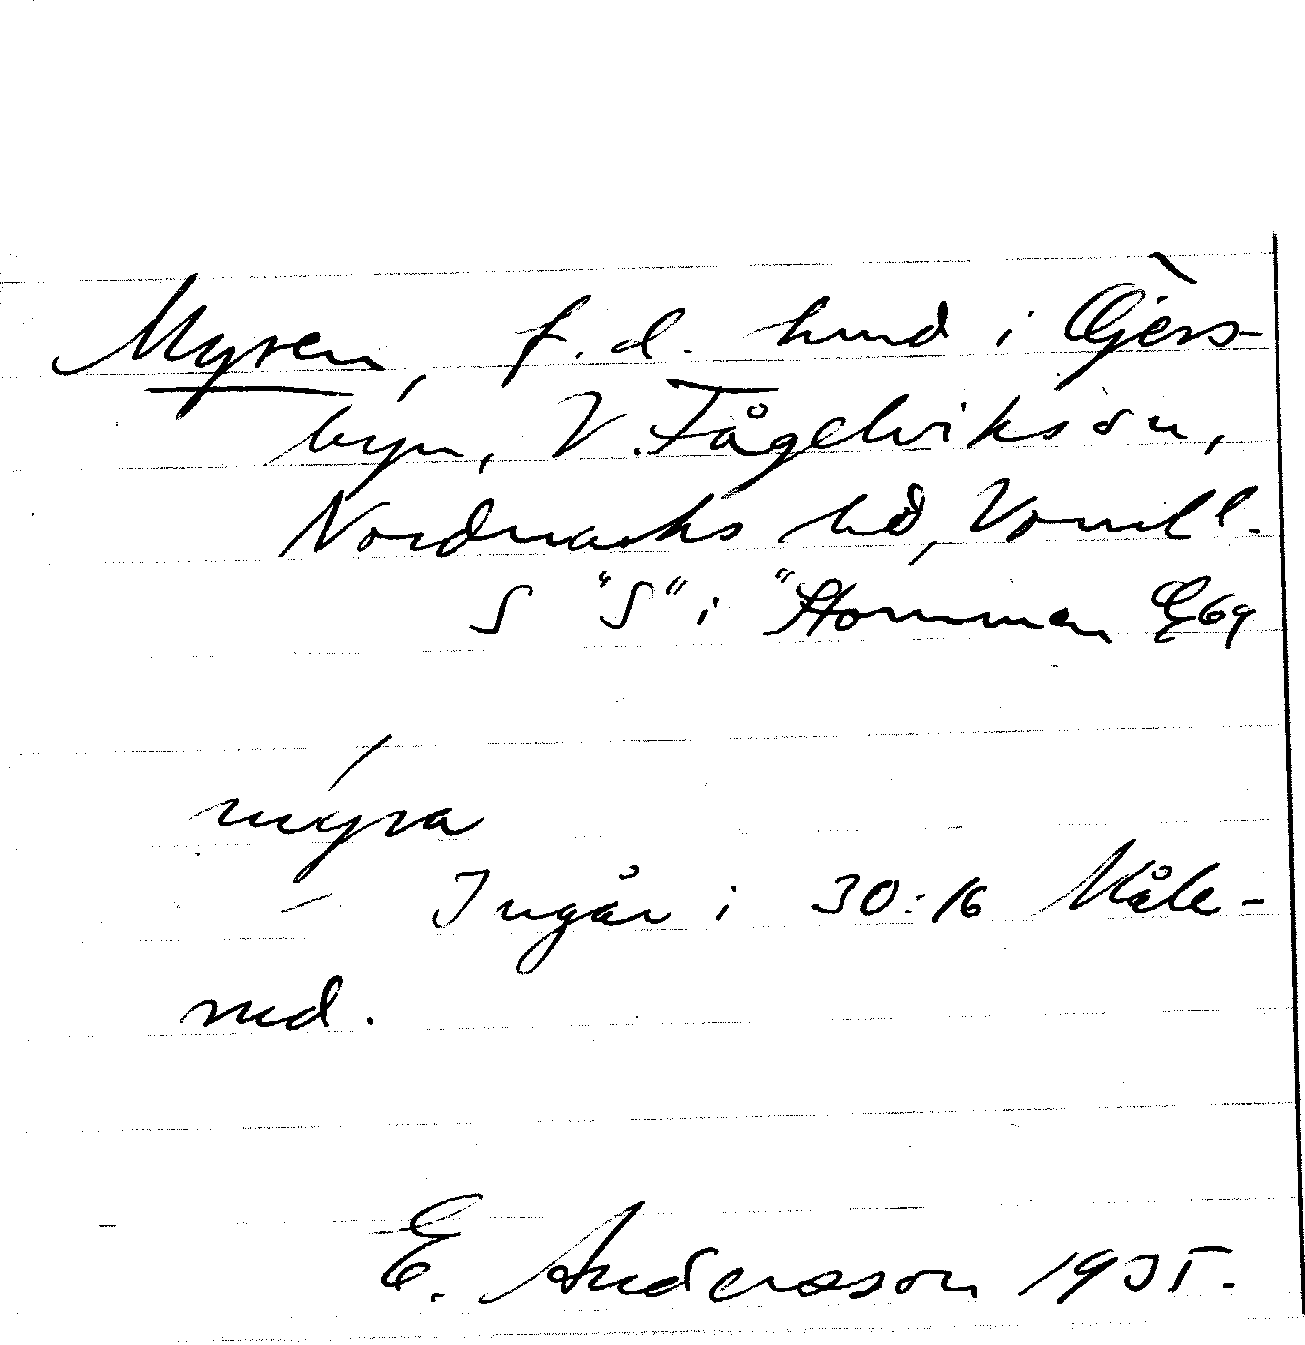 Myren, f.d. hmd i Gjers-
byn, V. Fågelviks sn,
Nordmarks hd, Vrml l.
S "S" i "Hommen E69
myra
– Ingår i 30:16 Måle-
rud.
E. Andersson 1935.